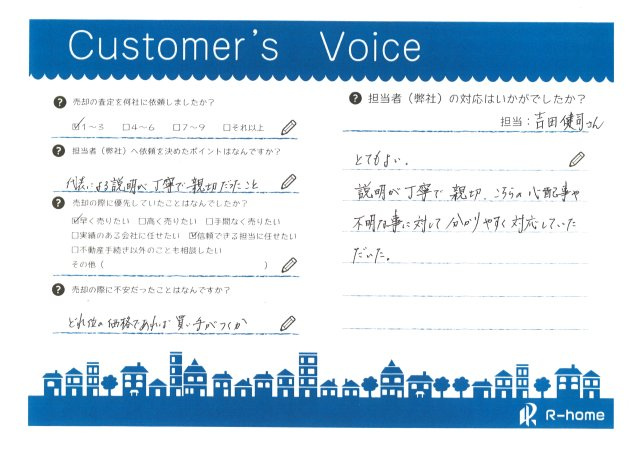 Customer's Voice
? 売却の査定を何社に依頼しましたか？
☑1～3 □4～6 □7～9 □それ以上
? 担当者（弊社）へ依頼を決めたポイントはなんですか？
代表による説明が丁寧で親切だったこと
? 売却の際に優先していたことはなんでしたか？
☑早く売りたい □高く売りたい □手間なく売りたい
□実績のある会社に任せたい ☑信頼できる担当に任せたい
□不動産手続き以外のことも相談したい
その他（ ）
? 売却の際に不安だったことはなんですか？
どれ位の価格であれば買い手がつくか
? 担当者（弊社）の対応はいかがでしたか？
担当：吉田健司さん
とてもよい。
説明が丁寧で親切、こちらの心配事や
不明な事に対して分かりやすく対応していた
だいた。
R-home